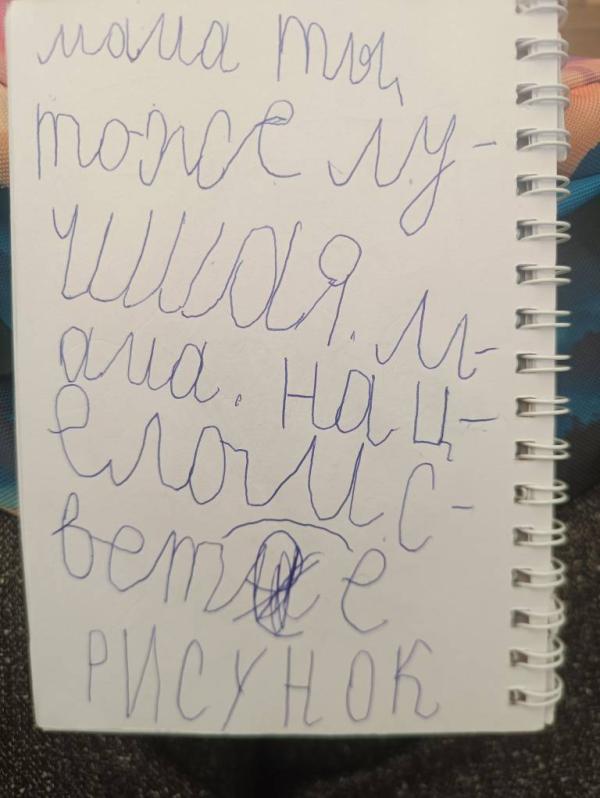 мама ты,
тоже лу-
чшая. м-
ама. на ц-
елом с-
вете
РИСУНОК